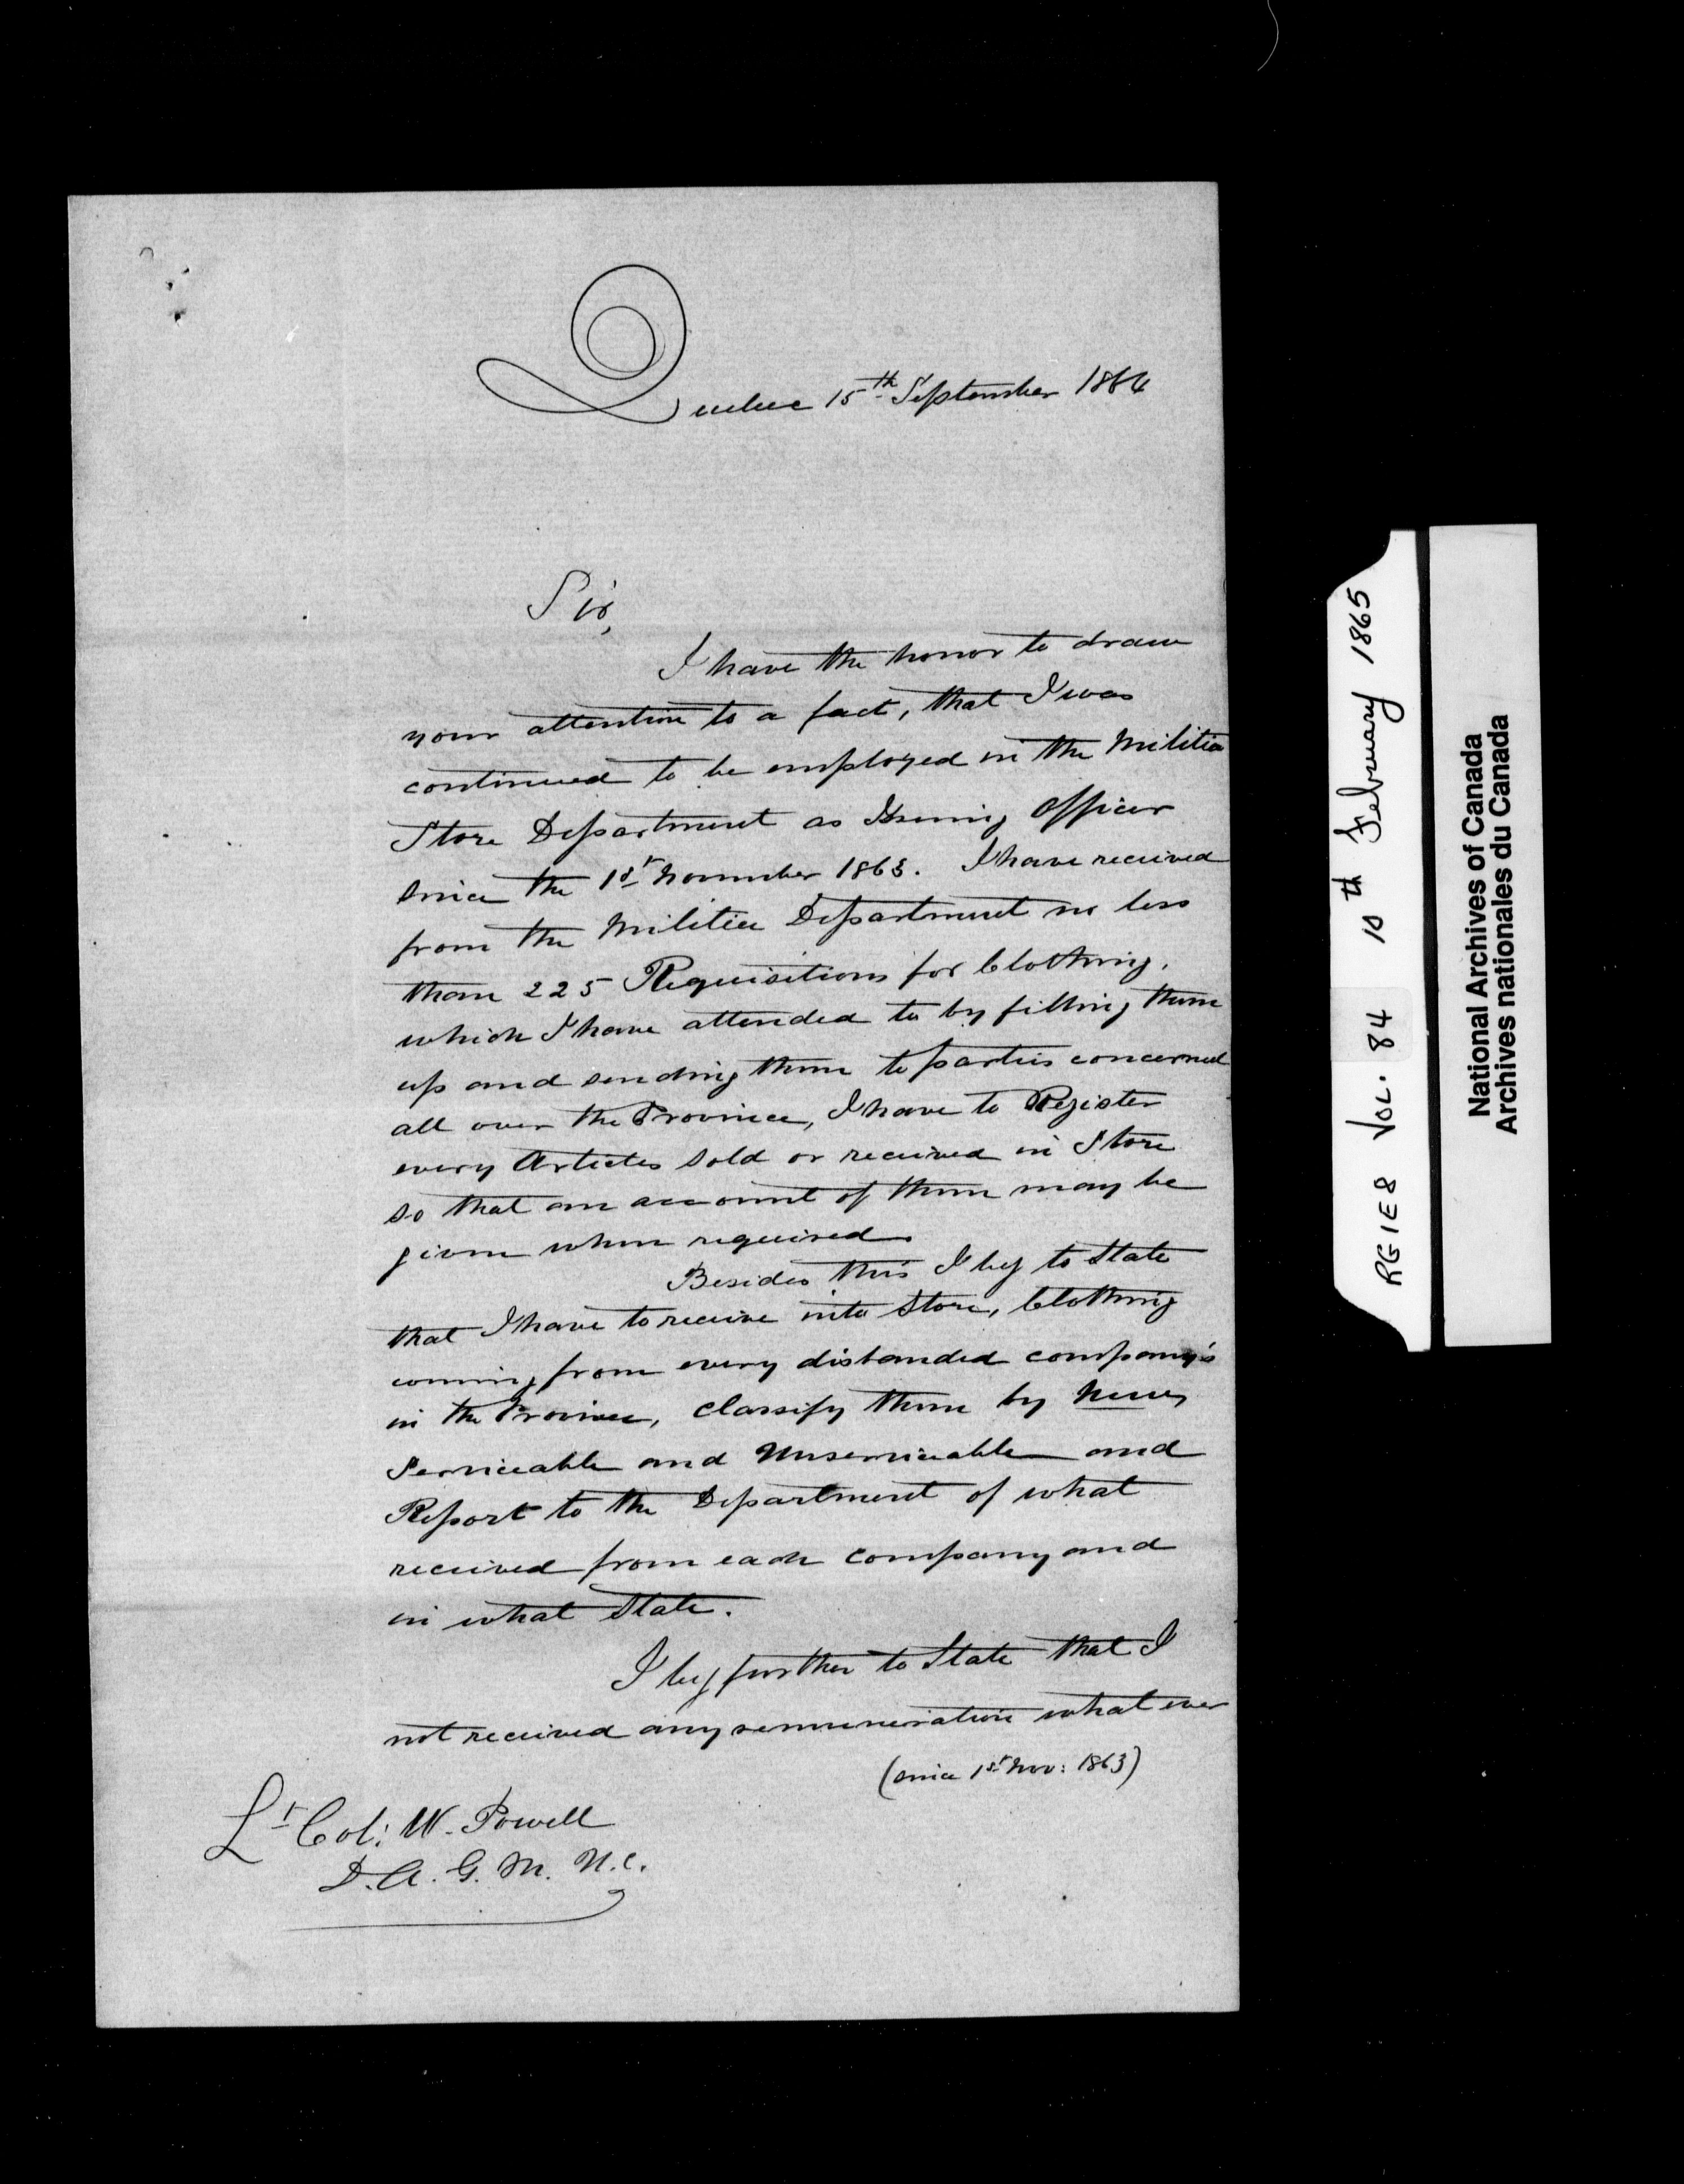 Quebec 15th September 1864
Sir,
I have the honor to draw
your attention to a fact, that I was
continued to be employed in the Militia
Store Department as Issuing Officer
since the 1st November 1863. I have received
from the Militia Department no less
than 225 Requisitions for Clothing,
which I have attended to by filling them
up and sending them to parties concerned
all over the Province, I have to Register
every Articles sold or received in Store
so that an account of them may be
given when required.
Besides this I beg to State
that I have to receive into Store, Clothing
coming from every disbanded company's
in the Province, Classify them by New,
Serviceable and Unserviceable and
Report to the Department of what
received from each Company and
in what State.
I beg further to State that I
not received any remuneration what ever
(since 1st Nov: 1863)
Lt Col: W. Powell
D.A.G.M. U.C.
RG1E8 VOL. 84 10th February 1865
National Archives of Canada
Archives nationales du Canada